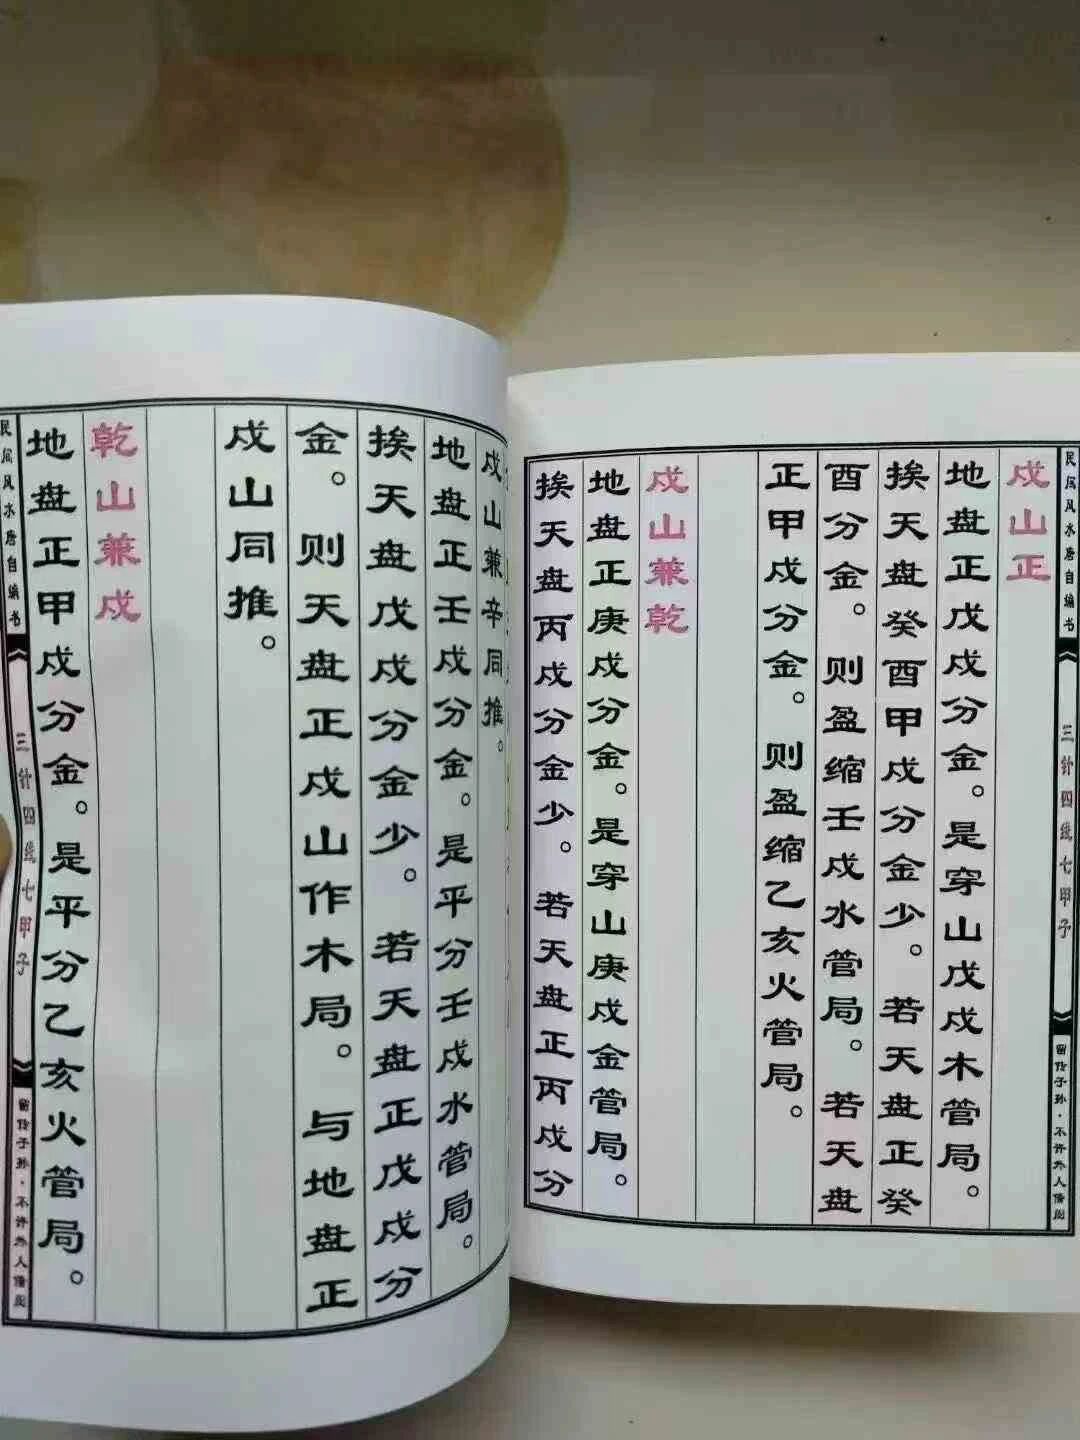 民风水唐自编书
三针四线七甲子
留传子孙·不许外人借阅
戌山正
地盘正戊戌分金。是穿山戊戌木管局。
挨天盘癸酉甲戌分金少。若天盘正癸
酉分金。则盈缩壬戌水管局。若天盘
正甲戌分金。则盈缩乙亥火管局。
戌山兼乾
地盘正庚戌分金。是穿山庚戌金管局。
挨天盘丙戌分金少。若天盘正丙戌分
戌山兼辛同推。
地盘正壬戌分金。是平分壬戌水管局。
挨天盘戊戌分金少。若天盘正戊戌分
金。则天盘正戌山作木局。与地盘正
戌山同推。
乾山兼戌
地盘正甲戌分金。是平分乙亥火管局。
民风水唐自编书
三针四线七甲子
留传子孙·不许外人借阅